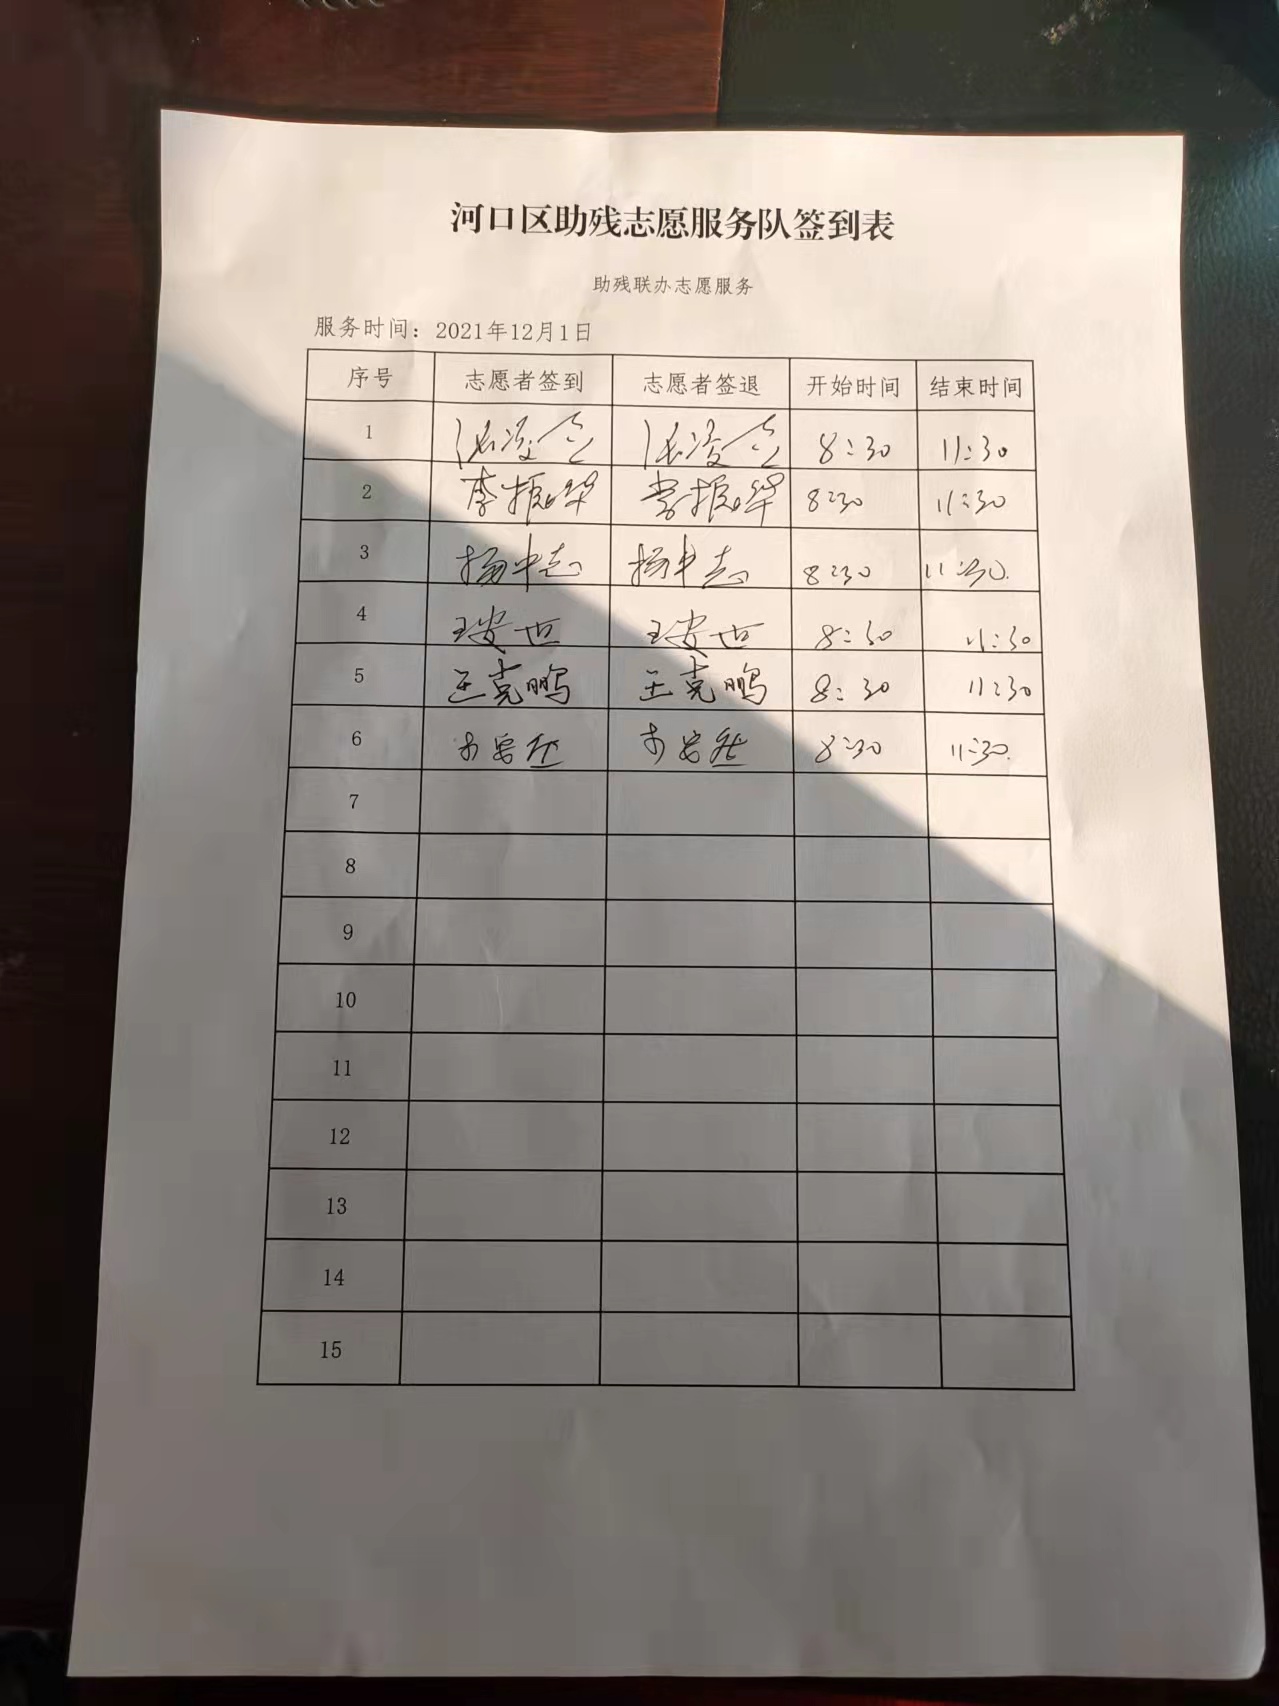 河口区助残志愿服务队签到表
助残联办志愿服务
服务时间：2021年12月1日
序号 志愿者签到 志愿者签退 开始时间 结束时间
1 8:30 11:30
2 李振华 李振华 8:30 11:30
3 杨中志 杨中志 8:30 11:30
4 王安世 王安世 8:30 11:30
5 王克鹏 王克鹏 8:30 11:30
6 8:30 11:30
7
8
9
10
11
12
13
14
15